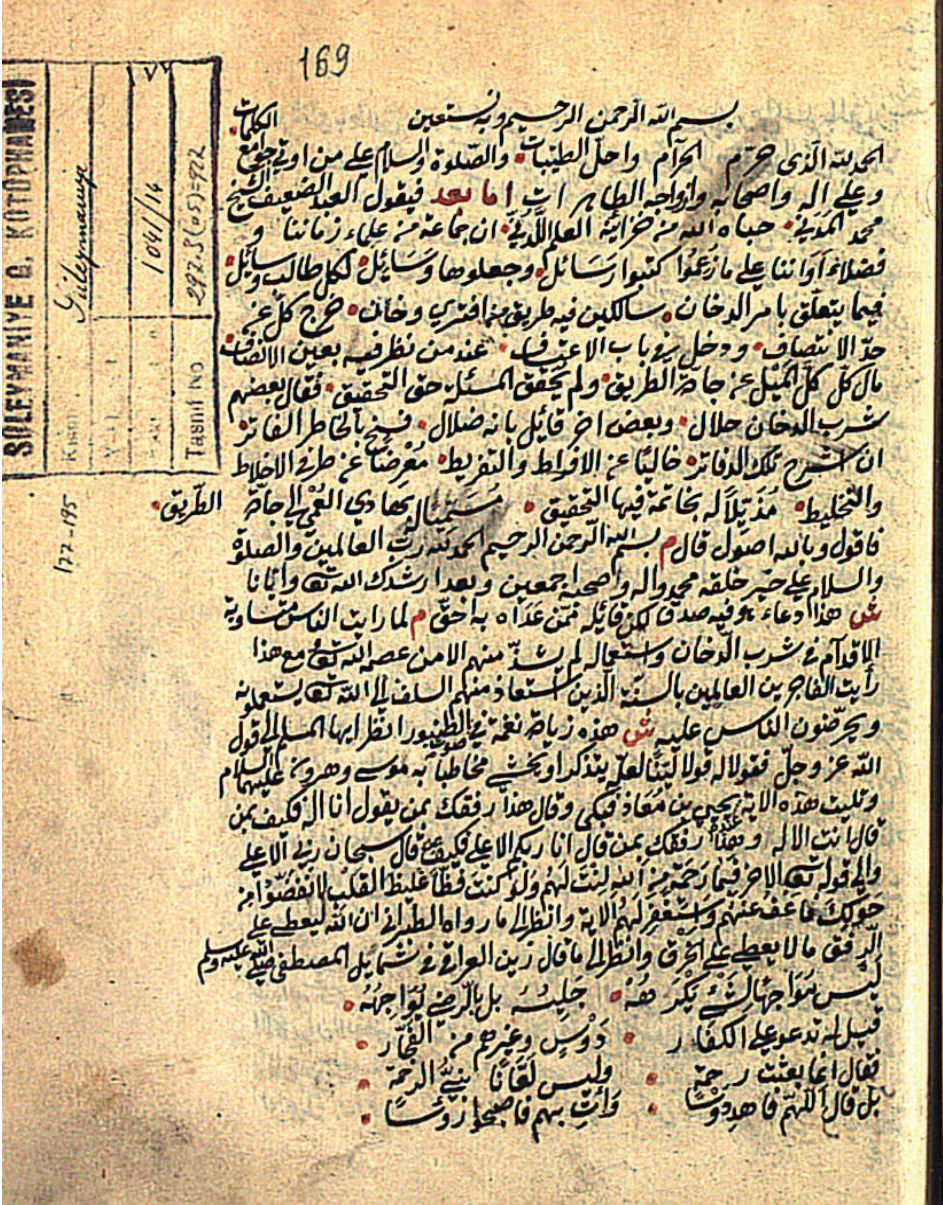 169
SÜLEYMANİYE G. KÜTÜPHANESİ
Süleymaniye
1041/14
Tasnif No 297.5(05)=927
122-195
بسم الله الرحمن الرحيم وبه نستعين
الحمد لله الذى حرّم الحرام واحلّ الطيبات والصلوة والسلام على من اوتى جوامع الكلمات
وعلى اله واصحابه وازواجه الطاهرات اما بعد فيقول العبد الضعيف الشيخ
محمد المدنى حباه الله من خزاينه العلم اللّدنىّ ان جماعة من علماء زماننا و
فضلاء آواننا على ما زعموا كتبوا رسائل وجعلوها وسائل لكل طالب وسائل
فيما يتعلق بامر الدخان سالكين فيه طريق من افترى وخان خرج كلّ عن
حدّ الانتصاف ودخل فى باب الاعتساف عند من نظر فيه بعين الانصاف
مال كلّ كلّ الميل عن جادّة الطريق ولم يحقق المسئلة حق التحقيق فقال بعضهم
شرب الدخان حلال وبعض اخر قايل بانه ضلال فسنح بالخاطر الفاتر
ان اشرح تلك الدفاتر خاليًا عن الافراط والتفريط معرضًا عن طرفى الاخلاط
والتخليط مذيّلًا له بخاتمة فيها التحقيق مستعينا بهادي العمى الى جادّة الطريق
فاقول وبالله اصول قال م بسم الله الرحمن الرحيم الحمد لله رب العالمين والصلوة
والسلام على خير خلقه محمد واله وصحبه اجمعين وبعد ارشدك الله تعالى وايانا
ش هذا دعاء وفيه صدق لكن قايله فمن عداه به احقّ م لما رايت الناس متساوية
الاقدام فى شرب الدخان واستعماله لم يشذّ منهم الا من عصمه الله تعالى مع هذا
رايت الفاجرين العالمين بالسنة الذين استعاذ منهم السلف الى الله تعالى يستعملونه
ويحرّضون الناس عليه ش هذه زيادة نغمة فى الطنبور انظر ايها المسلم الى قول
الله عز وجلّ فقولا له قولا لينًا لعله يتذكر او يخشى مخاطبا به موسى وهرون عليهما السلام
وتليت هذه الاية يحيى بن معاذ فبكى وقال هذا رفقك بمن يقول انا اله فكيف بمن
قال انت الاله وهذا رفقك بمن قال انا ربكم الاعلى فكيف بمن قال سبحان ربى الاعلى
والى قوله تعالى الاخر فبما رحمة من الله لنت لهم ولو كنت فظًا غليظ القلب لانفضوا من
حولك فاعف عنهم واستغفر لهم الاية وانظر الى ما رواه الطبرانى ان الله ليعطى على
الرفق ما لا يعطى على الخرق وانظر الى ما قال زين العراقى فى شمايل المصطفى صلى الله عليه وسلم
ليس مواجهًا بشئ يكرهه جليسه بل بالرضى يواجهه
قيل له تدعو على الكفار دوس وغيرهم من الفجّار
فقال انما بعثت رحمة وليس لعّانًا نبىّ الرحمة
بل قال اللهم فاهد دوسًا وأت بهم فاصبحوا رؤسًا